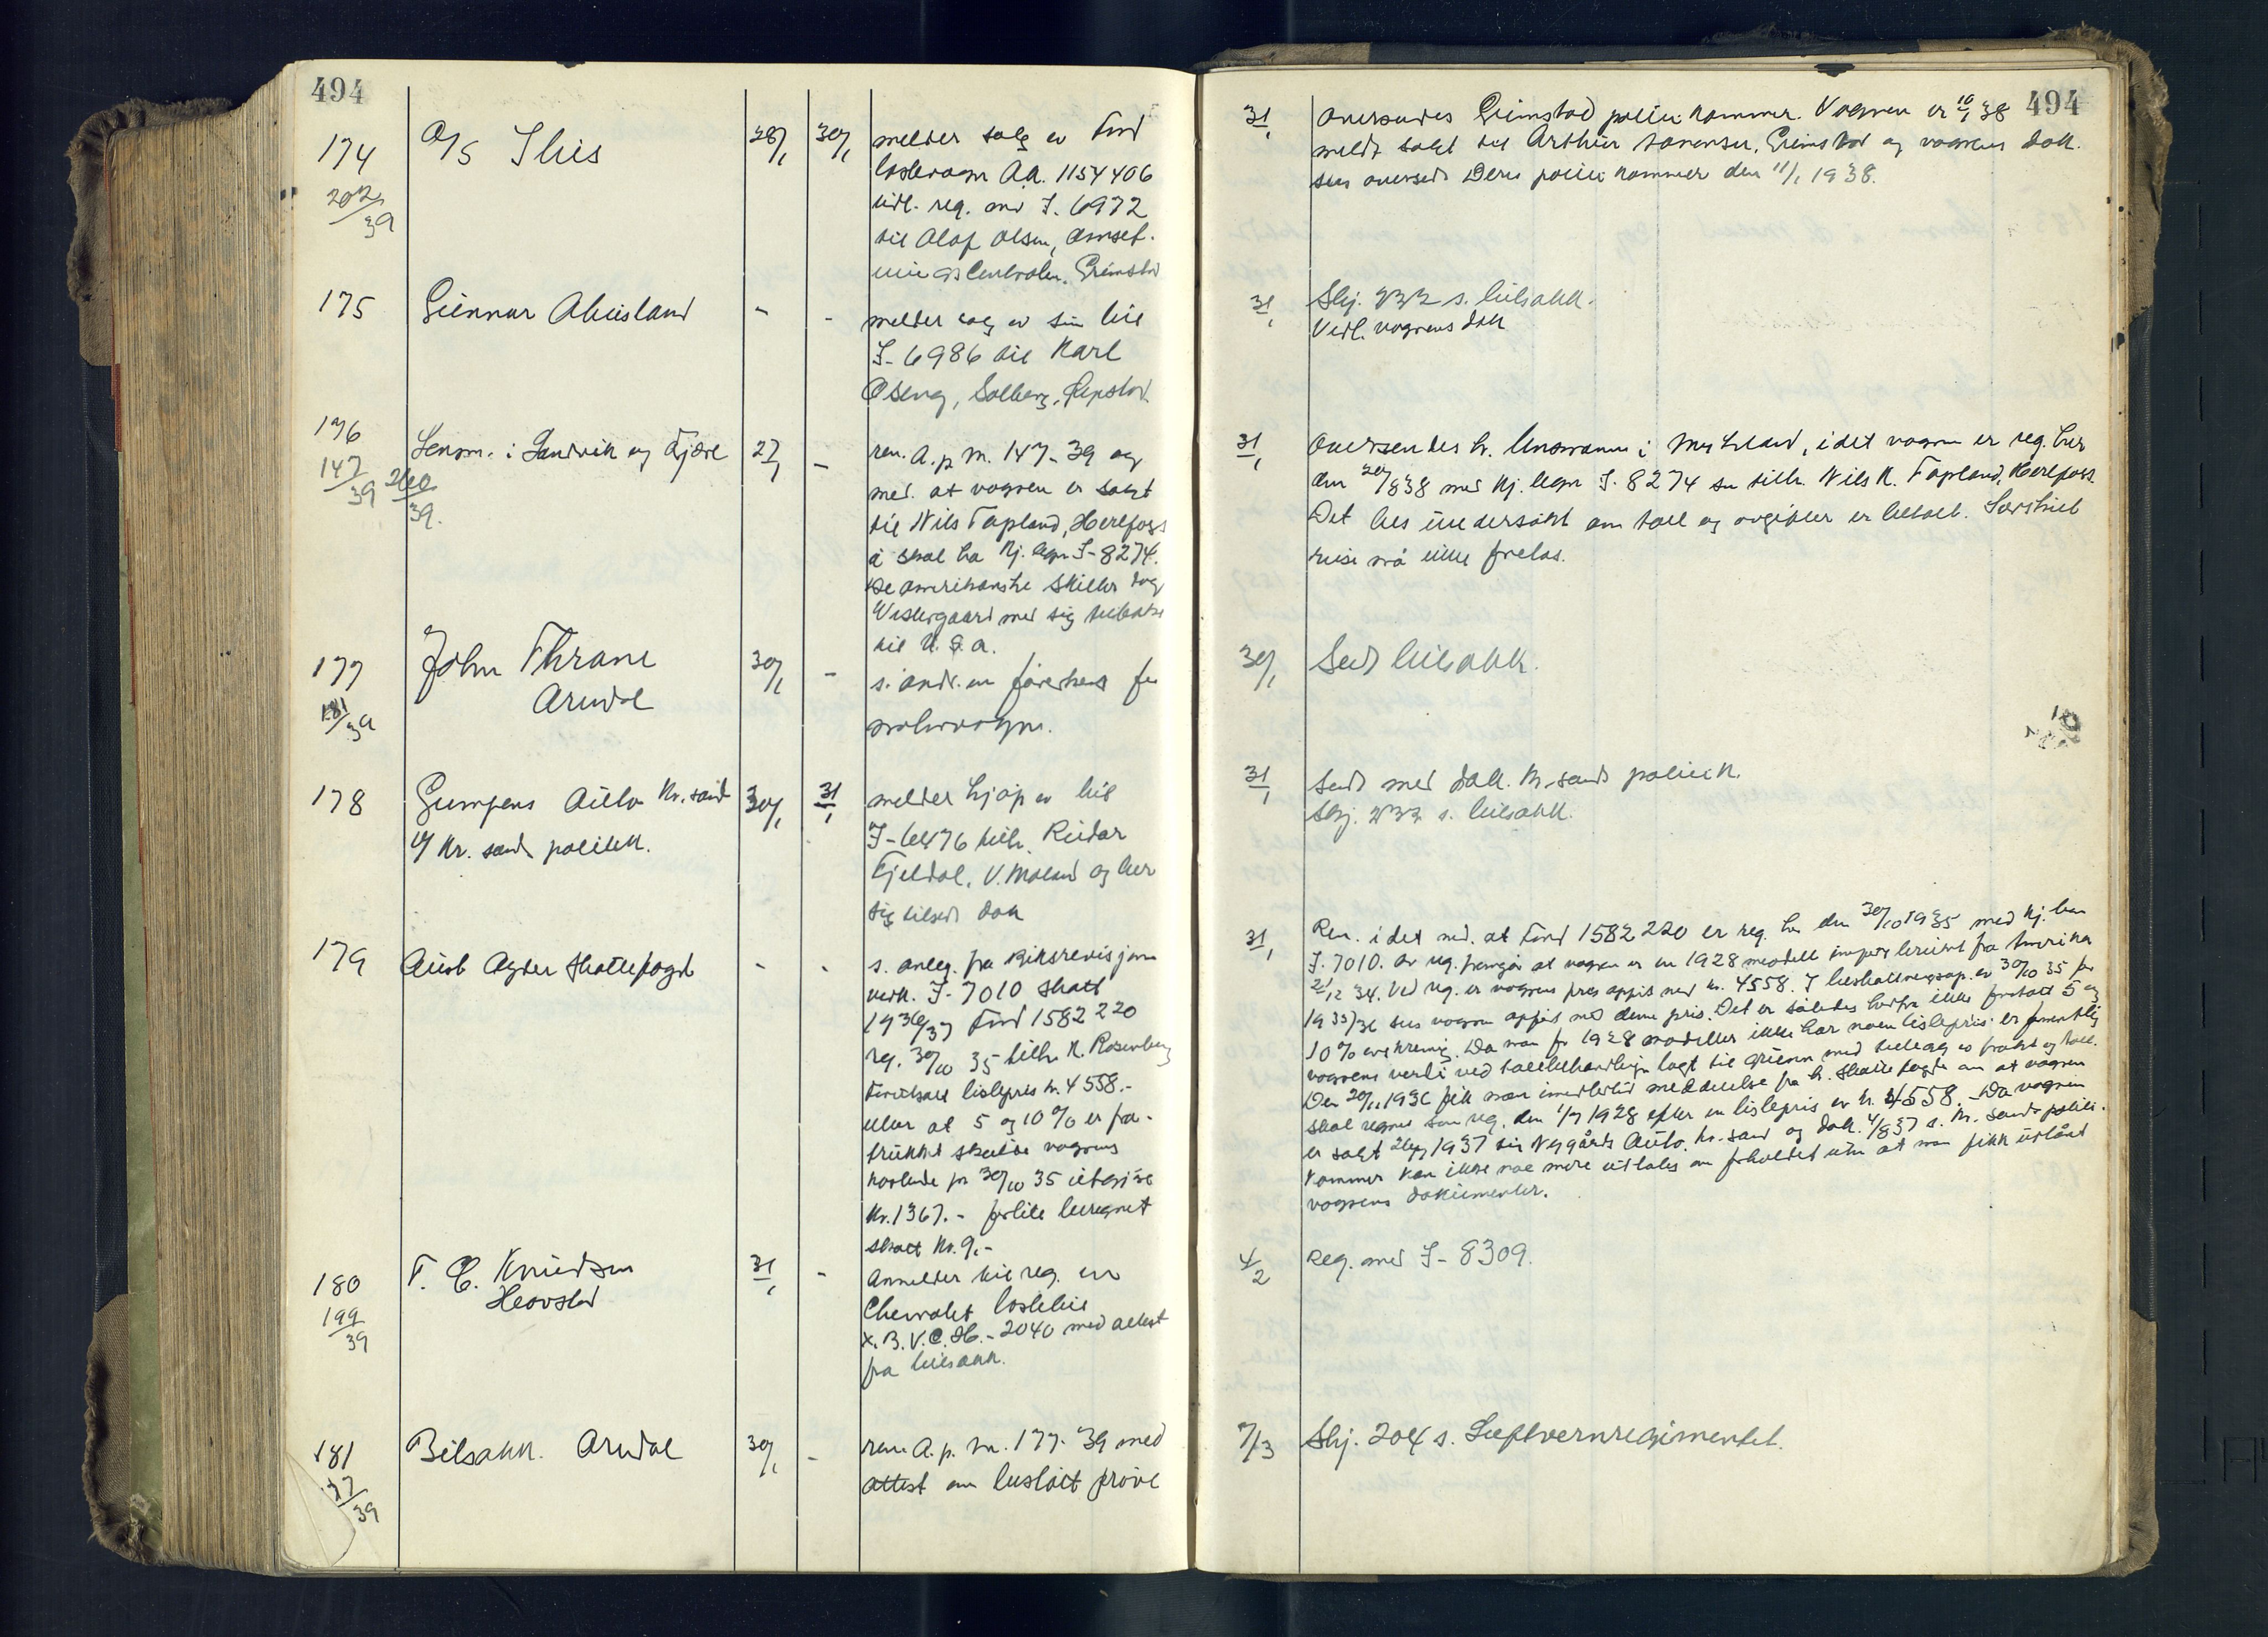 494
174
202/39
A/S Ihis
28/1 30/1
melder salg av Ford
lastevogn AA. 1154406
tidl. reg. med I. 6972
til Olaf Olsen, Omset-
ningscentralen. Grimstad
175
Gunnar Aluisland
- -
melder salg av sin bil
I-6986 til Karl
Oseng, Solberg, Qepstad.
176
147/39 260/39.
Lensm. i Landvik og Fjære
27/1 -
ren. A.p nr. 147-39 og
med. at vognen er solgt
til Nils Tapland, Herefoss
å skal ha kj. tegn I-8274.
De amerikanske skilter tog
Vestergaard med sig tilbake
til U.S.A.
177
181/39
John Thrane
Arendal
30/1 -
s. andr. om førerkort for
motorvogn.
178
Gumpens Auto Kr.sand
v/ Kr. sands politik.
30/1 31/1
melder kjøp av bil
I-6476 tilh. Reidar
Fjeldal, V. Moland og ber
sig tilsendt dok
179
Aust Agder skattefogd
- -
s. anleg. fra Riksrevisjonen
vedk. I-7010 skatt
1936/37 Ford 1582220
reg. 30/10 35 tilh. K. Rosenberg
Fortollet listepris kr. 4558.-
uten at 5 og 10% er fra-
trukket skulde vognens
pr 30/10 35 utgjøre
kr. 1367.- forlite beregnet
skatt kr. 9.-
180
199/39
T. C. Knudsen
Heovstad
31/1 -
Anmelder til reg. en
Chevrolet lastebil
X.B.V.C.H.-2040 med attest
fra bilsakk.
181
177/39
Bilsakk. Arendal
30/1 -
ren. A.p. nr. 177-39 med
attest om bestått prøve
494
31/1 Oversendes Grimstad politikammer. Vognen er 10/1 38
meldt solgt til Arthur Sørensen, Grimstad og vognens dok.
ble oversendt Deres politikammer den 11/1 1938.
31/1 Skj. 232 s. bilsakk.
Vedl. vognens dok
31/1 Oversendes hr. lensmannen i Mykland, idet vognen er reg. her
den 20/8 38 med kj. tegn I-8274 som tilh. Nils K. Tapland, Herefoss.
Det bes undersøkt om toll og avgifter er betalt. Særskilt
reise må ikke foretas.
30/1 Sendt bilsakk.
31/1 Sendt med dok. Kr.sands politik.
Skj. 232 s. bilsakk.
31/1 Ren. idet med. at Ford 1582220 er reg. her den 30/10 1935 med kj. tegn
I-7010. Av reg. fremgår at vognen er en 1928 modell import brukt fra Amerika
21/12 34. Ved reg. er vognens pris oppgit med kr. 4558. I beskatningsop. av 30/10 35 for
1935/36 sees vognen oppført med denne pris. Det er således herfra ikke fratatt 5 og
10% avskrivning. Da man for 1928 modeller ikke har noen listepris er formentlig
vognens verdi ved tollbehandlingen lagt til grunn med tillegg av frakt og toll.
Den 20/11 1936 fikk man imidlertid meddelelse fra hr. skattefogden om at vognen
skal regnes som reg. den 1/7 1928 efter en listepris av kr. 4558. Da vognen
er solgt 1937 til Nygårds Auto, Kr.sand og dok. 4/8 37 s. Kr.sands politi-
kammer kan ikke noe mere uttales om forholdet uten at man fikk utlånt
vognens dokumenter.
4/2 Reg. med I-8309.
7/3 Skj. 204 s. Luftvernregimentet.